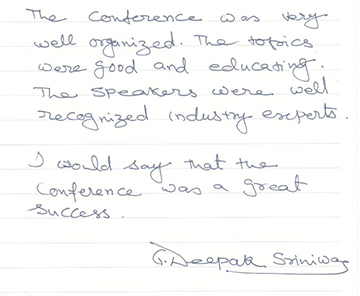 The Conference was very
well organized. The topics
were good and educating.
The Speakers were well
recognized industry experts.
I would say that the
Conference was a great
success.
G. Deepak Sriniwas